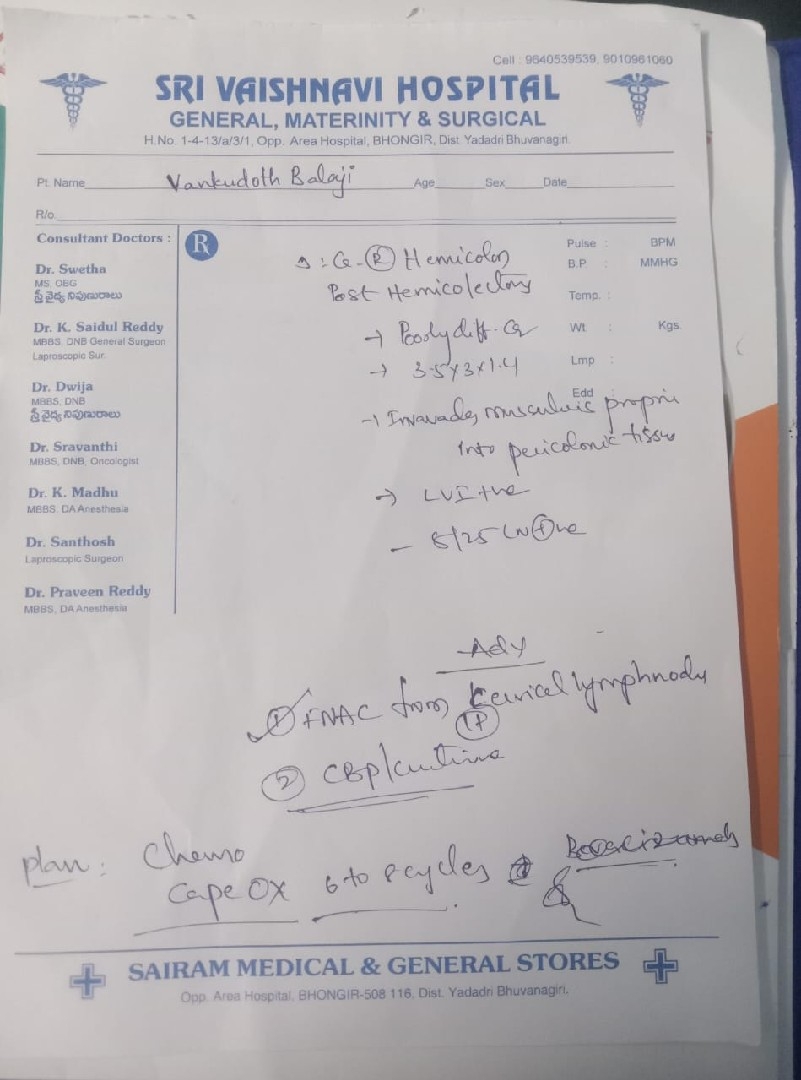 Cell : 9640539539, 9010961060
SRI VAISHNAVI HOSPITAL
GENERAL, MATERINITY & SURGICAL
H.No. 1-4-13/a/3/1, Opp. Area Hospital, BHONGIR, Dist. Yadadri Bhuvanagiri.
Pt. Name Vankudoth Balaji Age Sex Date
R/o.
Consultant Doctors :
Dr. Swetha
MS. OBG
స్త్రీ వైద్య నిపుణురాలు
Dr. K. Saidul Reddy
MBBS. DNB General Surgeon
Laproscopic Sur.
Dr. Dwija
MBBS, DNB
స్త్రీ వైద్య నిపుణురాలు
Dr. Sravanthi
MBBS, DNB, Oncologist
Dr. K. Madhu
MBBS, DA Anesthesia
Dr. Santhosh
Laproscopic Surgeon
Dr. Praveen Reddy
MBBS, DA Anesthesia
R
Pulse : BPM
B.P : MMHG
Temp. :
Wt : Kgs.
Lmp :
Edd
Ca (R) Hemicolon
Post Hemicolectomy
→ Poorly diff. Ca
→ 3.5x3x1.4
→ Invavades muscularis propri
into pericolonic tissue
→ LVI +ve
- 8/25 LN (+)ve
Adv
① FNAC from cervical lymphnody
② CBP/
Plan : Chemo
CapeOX 6 to 8 cycles
SAIRAM MEDICAL & GENERAL STORES
Opp. Area Hospital, BHONGIR-508 116, Dist. Yadadri Bhuvanagiri.